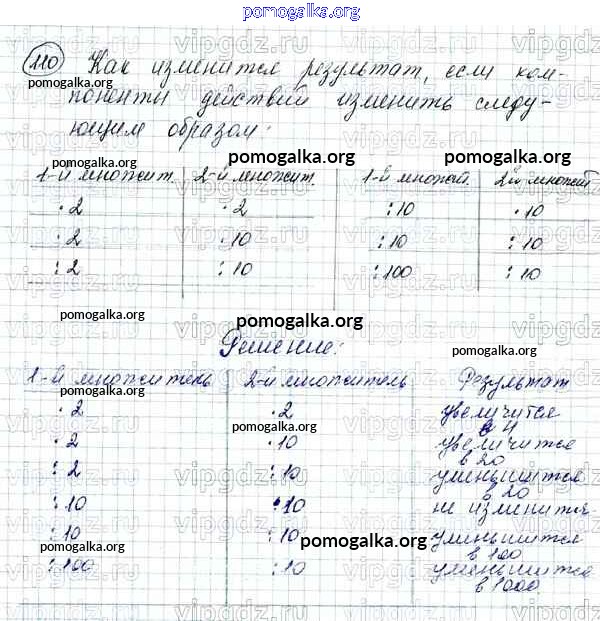 pomogalka.org
110 Как изменится результат, если ком-
поненты действий изменить следу-
ющим образом:
pomogalka.org pomogalka.org pomogalka.org
1-й множит. 2-й множит. 1-й множит. 2-й множит.
· 2 · 2 : 10 · 10
· 2 · 10 : 10 : 10
: 2 : 10 : 100 : 10
pomogalka.org pomogalka.org pomogalka.org
pomogalka.org
Решение:
pomogalka.org
1-й множитель 2-й множитель Результат
pomogalka.org
· 2 · 2 увеличится
в 4
pomogalka.org
· 2 · 10 увеличится
в 20
pomogalka.org
: 2 : 10 уменьшится
в 20
: 10 · 10 не изменится
pomogalka.org
: 10 : 10 уменьшится
в 100
pomogalka.org pomogalka.org
: 100 : 10 уменьшится
в 1000.
pomogalka.org